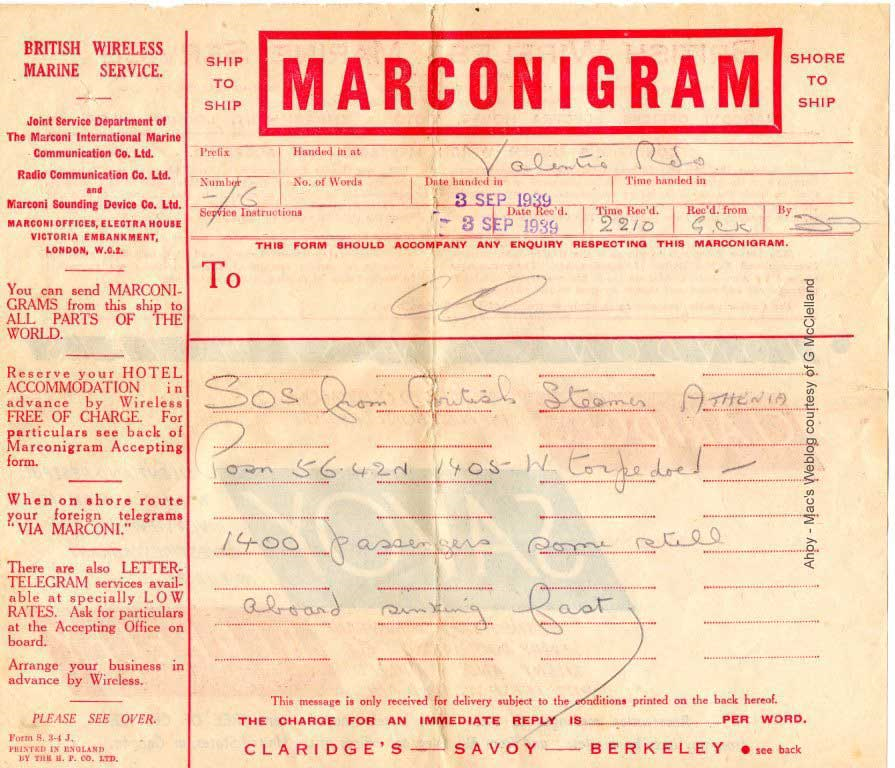 BRITISH WIRELESS
MARINE SERVICE.
Joint Service Department of
The Marconi International Marine
Communication Co. Ltd.
Radio Communication Co. Ltd.
and
Marconi Sounding Device Co. Ltd.
MARCONI OFFICES, ELECTRA HOUSE
VICTORIA EMBANKMENT,
LONDON, W.C.2.
You can send MARCONI-
GRAMS from this ship to
ALL PARTS OF THE
WORLD.
Reserve your HOTEL
ACCOMMODATION in
advance by Wireless
FREE OF CHARGE. For
particulars see back of
Marconigram Accepting
form.
When on shore route
your foreign telegrams
"VIA MARCONI."
There are also LETTER-
TELEGRAM services avail-
able at specially LOW
RATES. Ask for particulars
at the Accepting Office on
board.
Arrange your business in
advance by Wireless.
PLEASE SEE OVER.
Form S. 3-4 J.
PRINTED IN ENGLAND
BY THE H. P. CO. LTD.
SHIP
TO
SHIP
MARCONIGRAM
SHORE
TO
SHIP
Prefix
Handed in at
Valentia Rdo.
Number
-/6
No. of Words
Date handed in
3 SEP 1939
Time handed in
Service Instructions
Date Rec'd.
- 3 SEP 1939
Time Rec'd.
2210
Rec'd. from
GCK
By
THIS FORM SHOULD ACCOMPANY ANY ENQUIRY RESPECTING THIS MARCONIGRAM.
To
SOS from British Steamer ATHENIA
Posn 56.42N 1405 W torpedoed -
1400 passengers some still
aboard sinking fast
This message is only received for delivery subject to the conditions printed on the back hereof.
THE CHARGE FOR AN IMMEDIATE REPLY IS PER WORD.
CLARIDGE'S — SAVOY — BERKELEY ● see back
Ahoy - Mac's Weblog courtesy of G McClelland